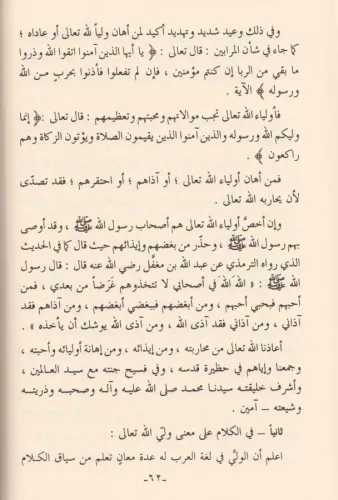 وفي ذلك وعيد شديد وتهديد أكيد لمن أهان ولياً لله تعالى أو عاداه ؛
كما جاء في شأن المرابين : قال تعالى : ﴿ يا أيها الذين آمنوا اتقوا الله وذروا
ما بقي من الربا إن كنتم مؤمنين ، فإن لم تفعلوا فأذنوا بحرب من الله
ورسوله ﴾ الآية .
فأولياء الله تعالى تجب موالاتهم ومحبتهم وتعظيمهم : قال تعالى : ﴿ إنما
وليكم الله ورسوله والذين آمنوا الذين يقيمون الصلاة ويؤتون الزكاة وهم
راكعون ﴾ .
فمن أهان أولياء الله تعالى ؛ أو آذاهم ؛ أو احتقرهم ؛ فقد تصدّى
لأن يحاربه الله تعالى .
وإن أخصَّ أولياء الله تعالى هم أصحاب رسول الله ﷺ ، وقد أوصى
بهم رسول الله ﷺ ، وحذّر من بغضهم وإيذائهم حيث قال كما في الحديث
الذي رواه الترمذي عن عبد الله بن مغفَّل رضي الله عنه قال : قال رسول
ﷺ : « الله الله في أصحابي لا تتخذوهم غَرَضاً من بعدي ، فمن
أحبهم فبحبي أحبهم ، ومن أبغضهم فببغضي أبغضهم ، ومن آذاهم فقد
آذاني ، ومن آذاني فقد آذى الله ، ومن آذى الله يوشك أن يأخذه » .
أعاذنا الله تعالى من محاربته ، ومن إيذائه ، ومن إهانة أوليائه وأحبته ،
وجمعنا وإياهم في حظيرة قدسه ، وفي فسيح جنته مع سيد العالمين ،
وأشرف خليقته سيدنا محمد صلى الله عليه وآله وصحبه وذريته
وشيعته ــ آمين .
ثانياً ــ في الكلام على معنى وليّ الله تعالى :
اعلم أن الوليَّ في لغة العرب له عدة معانٍ تعلم من سياق الكلام
-٦٢-